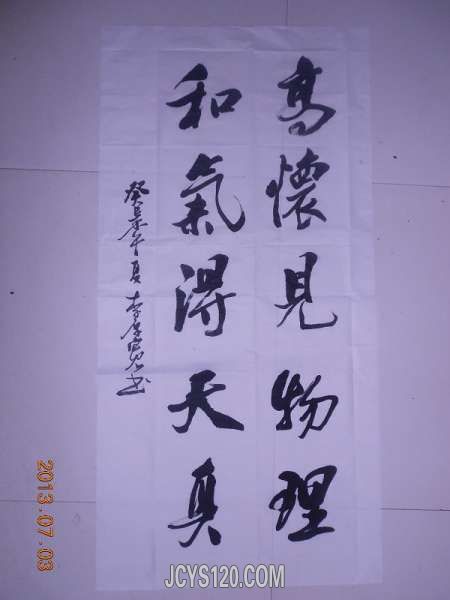 高懷見物理
和氣得天真
癸巳年夏 李
2013.07.03
JCYS120.COM